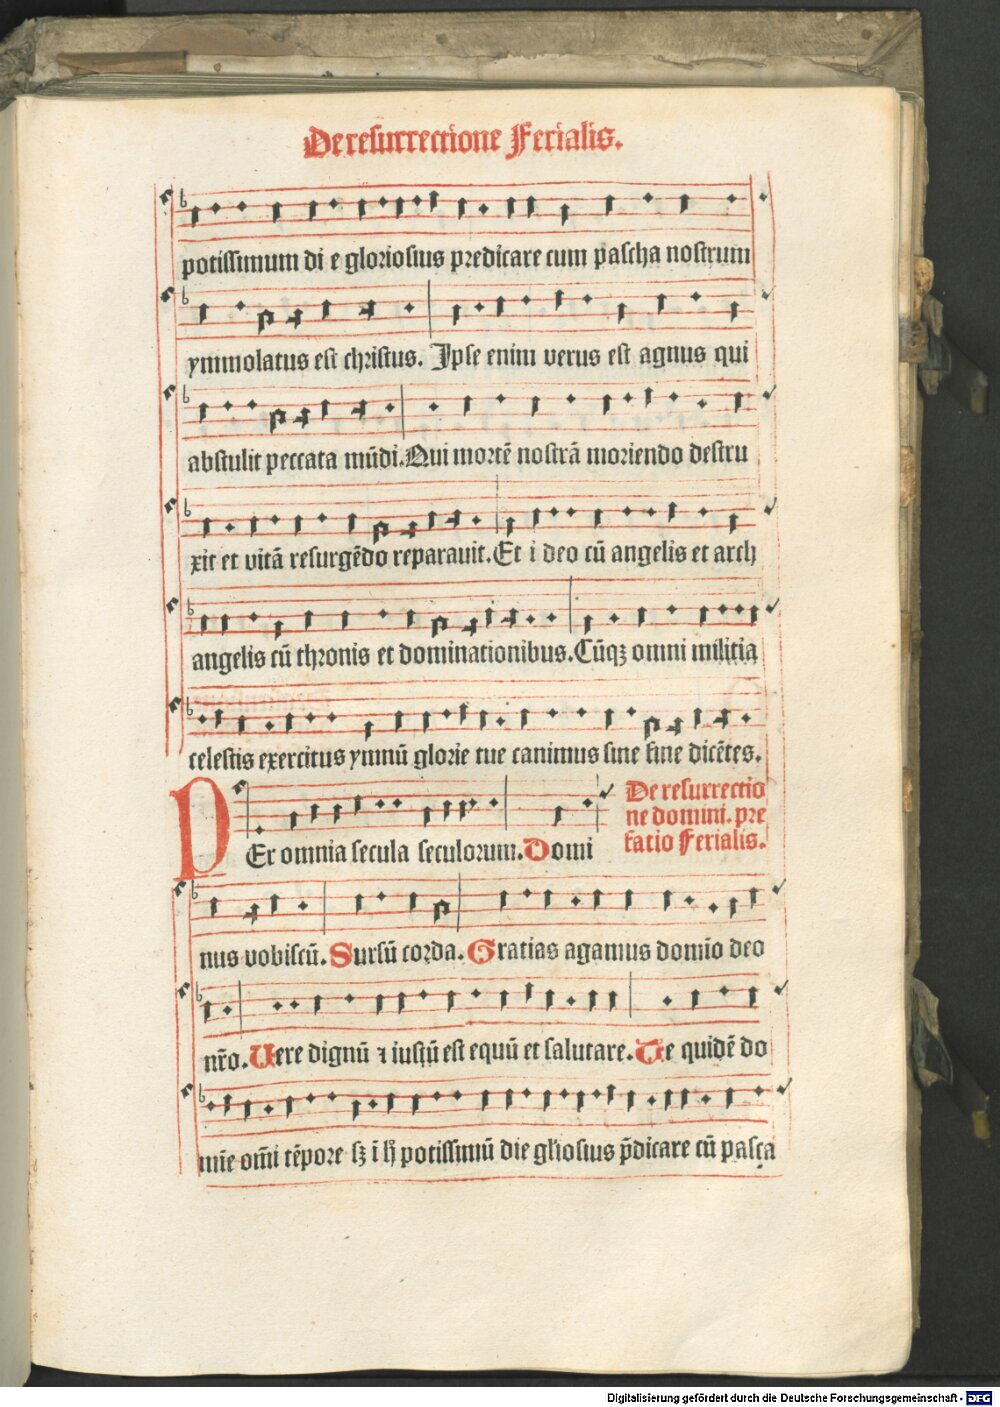 De resurrectione Ferialis.
potissimum di e gloriosius predicare cum pascha nostrum
ymmolatus est christus. Ipse enim verus est agnus qui
abstulit peccata mūdi. Qui mortē nostrā moriendo destru
xit et vitā resurgēdo reparauit. Et i deo cū angelis et arch
angelis cū thronis et dominationibus. Cūqꝫ omni militia
celestis exercitus ymnū glorie tue canimus sine fine dicētes.
PEr omnia secula seculorum. Domi
De resurrectio
ne domini. pre
fatio Ferialis.
nus vobiscū. Sursū corda. Gratias agamus domīo deo
nr̄o. Uere dignū ⁊ iustū est equū et salutare. Te quidē do
mīe om̄i tēpore sꝫ ī h̄ potissimū die gl'iosius p̄dicare cū pasca
Digitalisierung gefördert durch die Deutsche Forschungsgemeinschaft - DFG